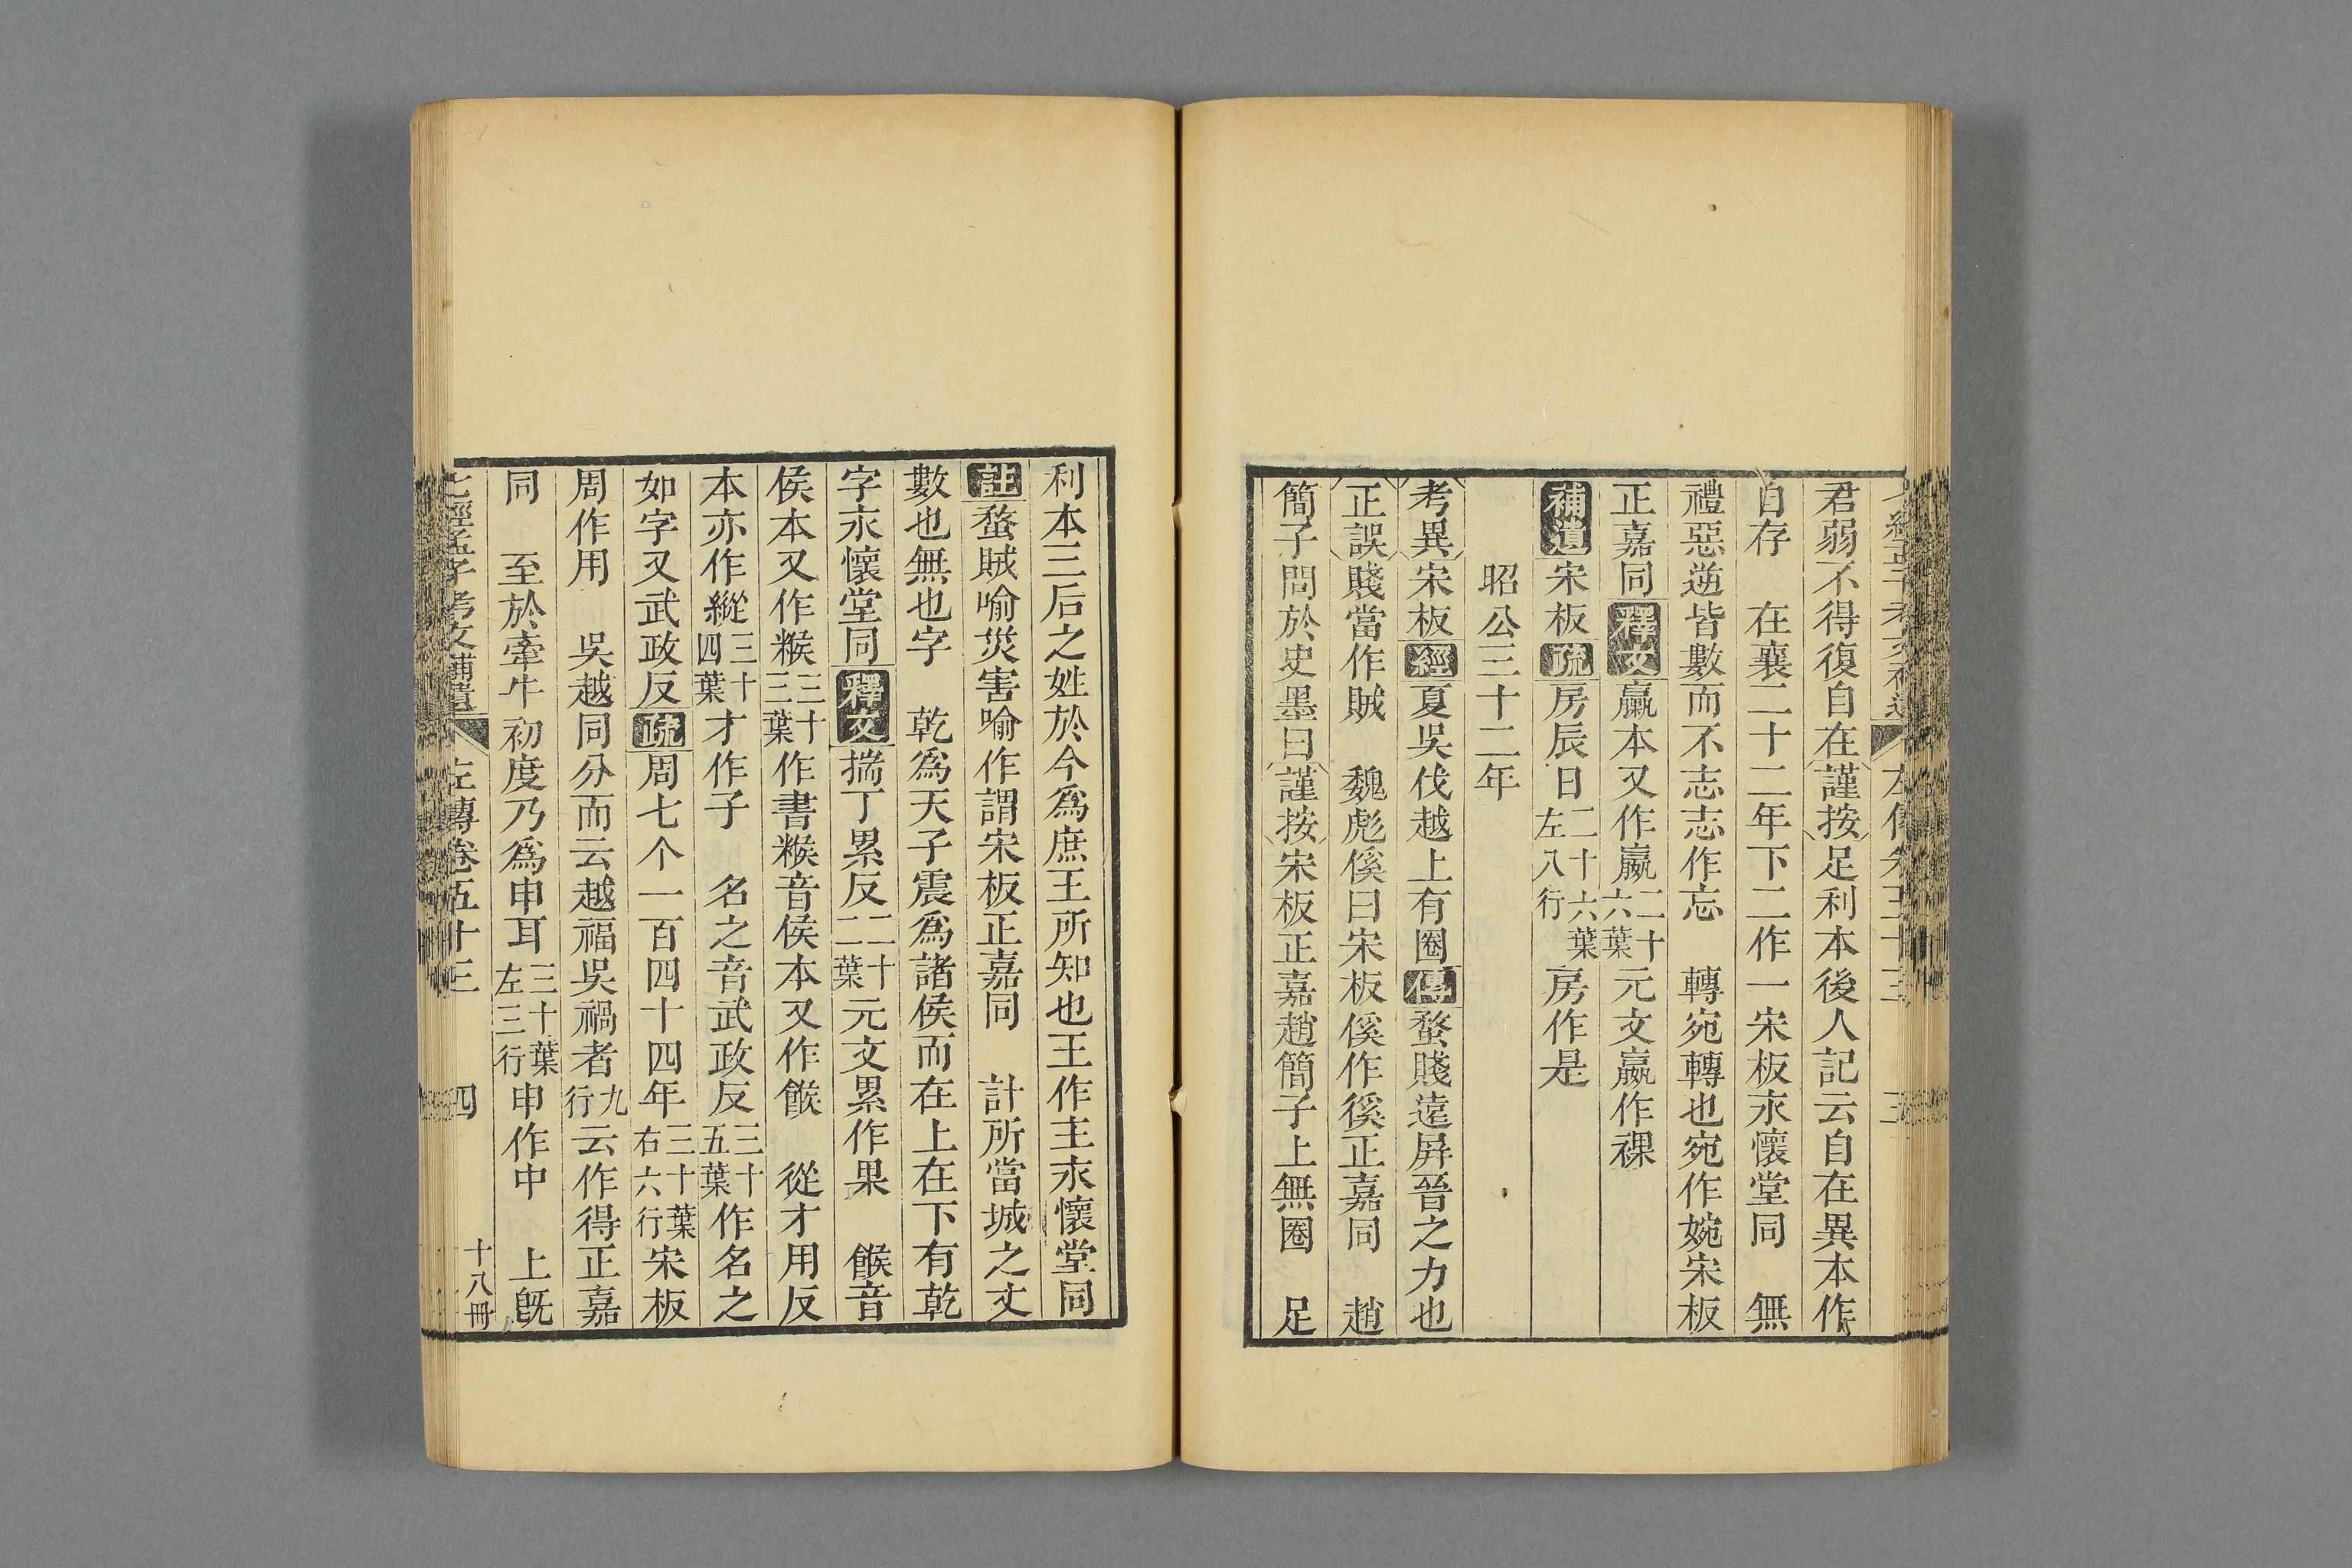 君弱不得復自在謹按足利本後人記云自在異本作
自存　在襄二十二年下二作一宋板永懷堂同　無
禮惡逆皆數而不志志作忘　轉宛轉也宛作婉宋板
正嘉同釋文羸本又作嬴二十六葉元文嬴作裸
補遺宋板疏房辰日二十六葉左八行房作是
昭公三十二年
考異宋板經夏吳伐越上有圈傳蝥賤遠屛晉之力也
正誤賤當作賊　魏彪傒曰宋板傒作徯正嘉同　趙
簡子問於史墨曰謹按宋板正嘉趙簡子上無圈　足
利本三后之姓於今爲庶王所知也王作主永懷堂同
註蝥賊喻災害喻作謂宋板正嘉同　計所當城之丈
數也無也字　乾爲天子震爲諸侯而在上在下有乾
字永懷堂同釋文揣丁累反二十二葉元文累作果　餱音
侯本又作糇三十三葉作書糇音侯本又作餱　從才用反
本亦作縱三十四葉才作子　名之音武政反三十五葉作名之
如字又武政反疏周七个一百四十四年三十葉右六行宋板
周作用　吳越同分而云越福吳禍者九行云作得正嘉
同　至於牽牛初度乃爲申耳三十葉左三行申作中　上旣
七經孟子考文補遺　左傳卷五十三　四　十八冊